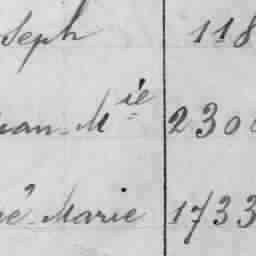 seph 118
ean-Mie 2300
né-Marie 1733